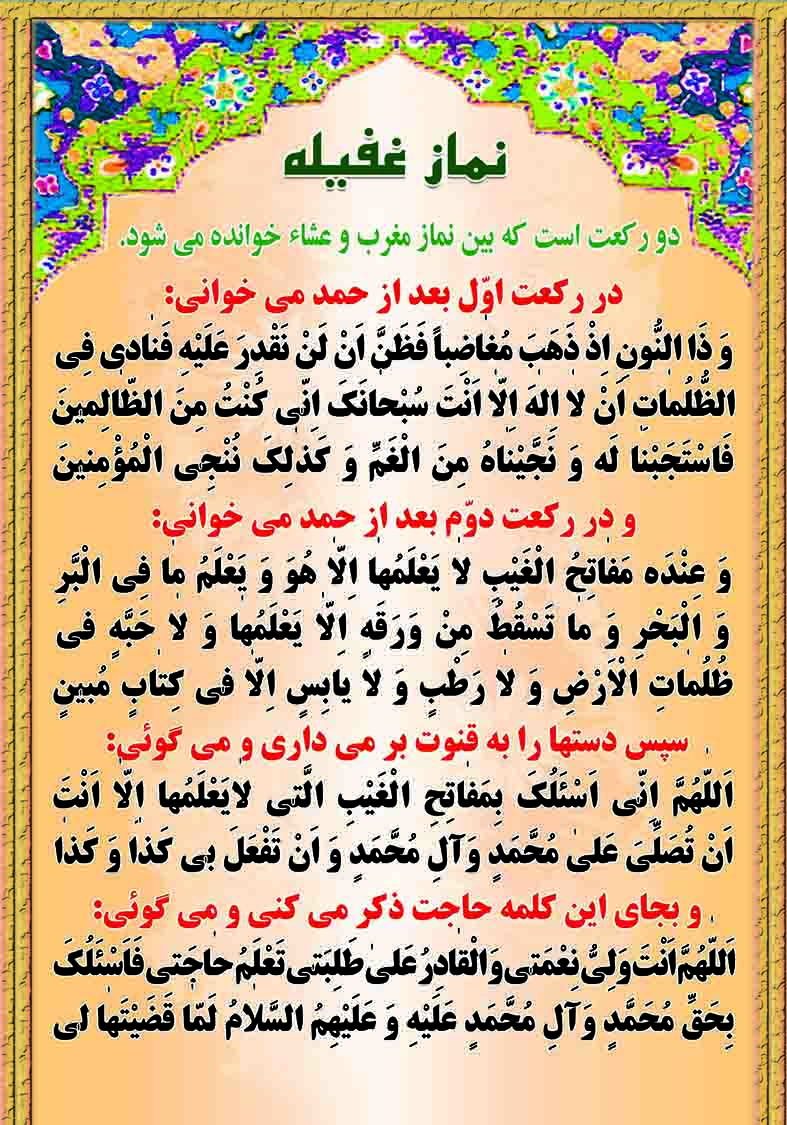 نماز غفیله
دو رکعت است که بین نماز مغرب و عشاء خوانده می شود.
در رکعت اوّل بعد از حمد می خوانی:
وَ ذَا النُّونِ اِذْ ذَهَبَ مُغاضِباً فَظَنَّ اَنْ لَنْ نَقْدِرَ عَلَیْهِ فَنادی فِی
الظُّلُماتِ اَنْ لا اِلهَ اِلّا اَنْتَ سُبْحانَکَ اِنّی کُنْتُ مِنَ الظّالِمینَ
فَاسْتَجَبْنا لَه وَ نَجَّیْناهُ مِنَ الْغَمِّ وَ کَذلِکَ نُنْجِی الْمُؤْمِنینَ
و در رکعت دوّم بعد از حمد می خوانی:
وَ عِنْدَه مَفاتِحُ الْغَیْبِ لا یَعْلَمُها اِلّا هُوَ وَ یَعْلَمُ ما فِی الْبَرِ
وَ الْبَحْرِ وَ ما تَسْقُطُ مِنْ وَرَقَهٍ اِلّا یَعْلَمُها وَ لا حَبَّهٍ فی
ظُلُماتِ الْاَرْضِ وَ لا رَطْبٍ وَ لا یابِسٍ اِلّا فی کِتابٍ مُبینٍ
سپس دستها را به قنوت بر می داری و می گوئی:
اَللّهُمَّ اِنّی اَسْئَلُکَ بِمَفاتِحِ الْغَیْبِ الَّتی لایَعْلَمُها اِلّا اَنْتَ
اَنْ تُصَلِّیَ عَلیٰ مُحَمَّدٍ وَآلِ مُحَمَّدٍ وَ اَنْ تَفْعَلَ بی کَذا وَ کَذا
و بجای این کلمه حاجت ذکر می کنی و می گوئی:
اَللّهُمَّ اَنْتَ وَلِیُّ نِعْمَتی وَالْقادِرُ عَلیٰ طَلِبَتی تَعْلَمُ حاجَتی فَاَسْئَلُکَ
بِحَقِّ مُحَمَّدٍ وَآلِ مُحَمَّدٍ عَلَیْهِ وَ عَلَیْهِمُ السَّلامُ لَمّا قَضَیْتَها لی